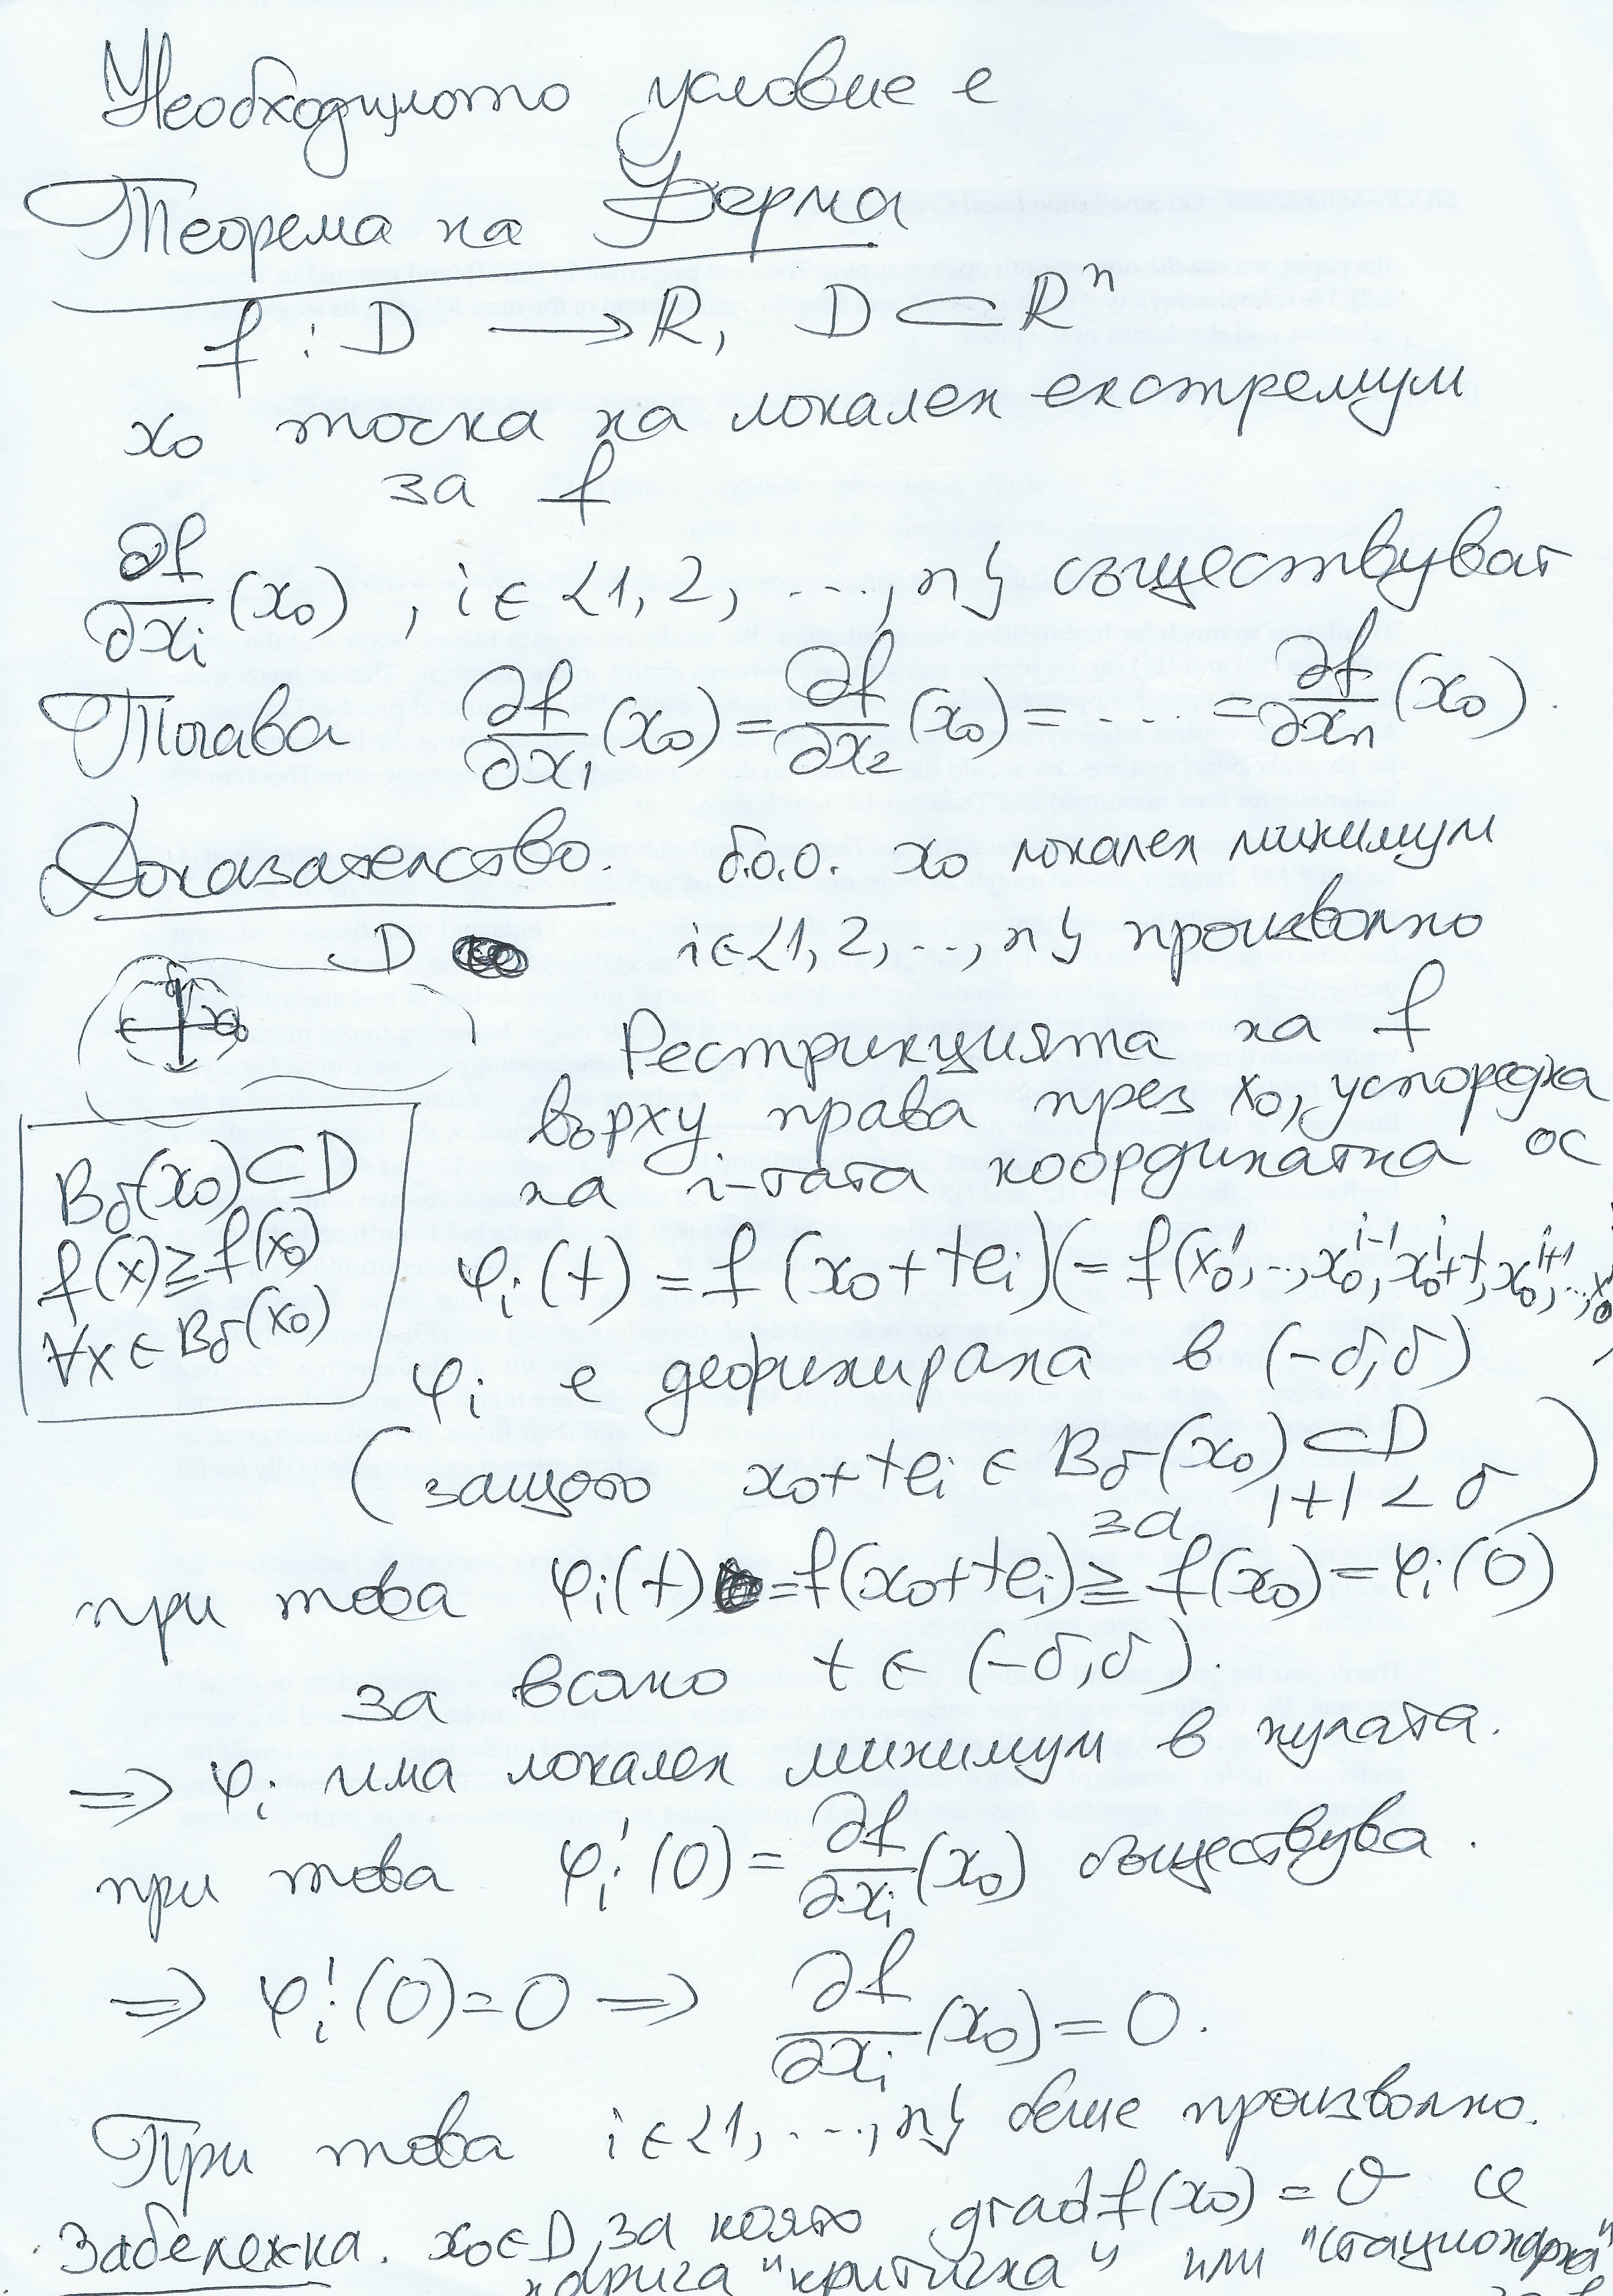 Необходимото условие е
Теорема на Ферма
f : D → R, D ⊂ R^n
x₀ точка на локален екстремум
за f
∂f/∂x_i (x₀), i ∈ {1, 2, ..., n} съществуват
Тогава ∂f/∂x₁ (x₀) = ∂f/∂x₂ (x₀) = ... = ∂f/∂x_n (x₀).
Доказателство. б.о.о. x₀ локален минимум
D i ∈ {1, 2, ..., n} произволно
x₀
Рестрикцията на f
върху права през x₀, успоредна
на i-тата координатна ос
B_δ(x₀) ⊂ D
f(x) ≥ f(x₀)
∀x ∈ B_δ(x₀)
φ_i(t) = f(x₀ + te_i) (= f(x₀^1, .., x₀^{i-1}, x₀^i + t, x₀^{i+1}, ..., x₀
φ_i е дефинирана в (-δ, δ)
(защото x₀ + te_i ∈ B_δ(x₀) ⊂ D
за |t| < δ)
при това φ_i(t) = f(x₀ + te_i) ≥ f(x₀) = φ_i(0)
за всяко t ∈ (-δ, δ).
⇒ φ_i има локален минимум в нулата.
при това φ_i'(0) = ∂f/∂x_i (x₀) съществува.
⇒ φ_i'(0) = 0 ⇒ ∂f/∂x_i (x₀) = 0.
При това i ∈ {1, ..., n} беше произволно.
Забележка. x₀ ∈ D, за която grad f(x₀) = 0 се
нарича "критична" или "стационарна"